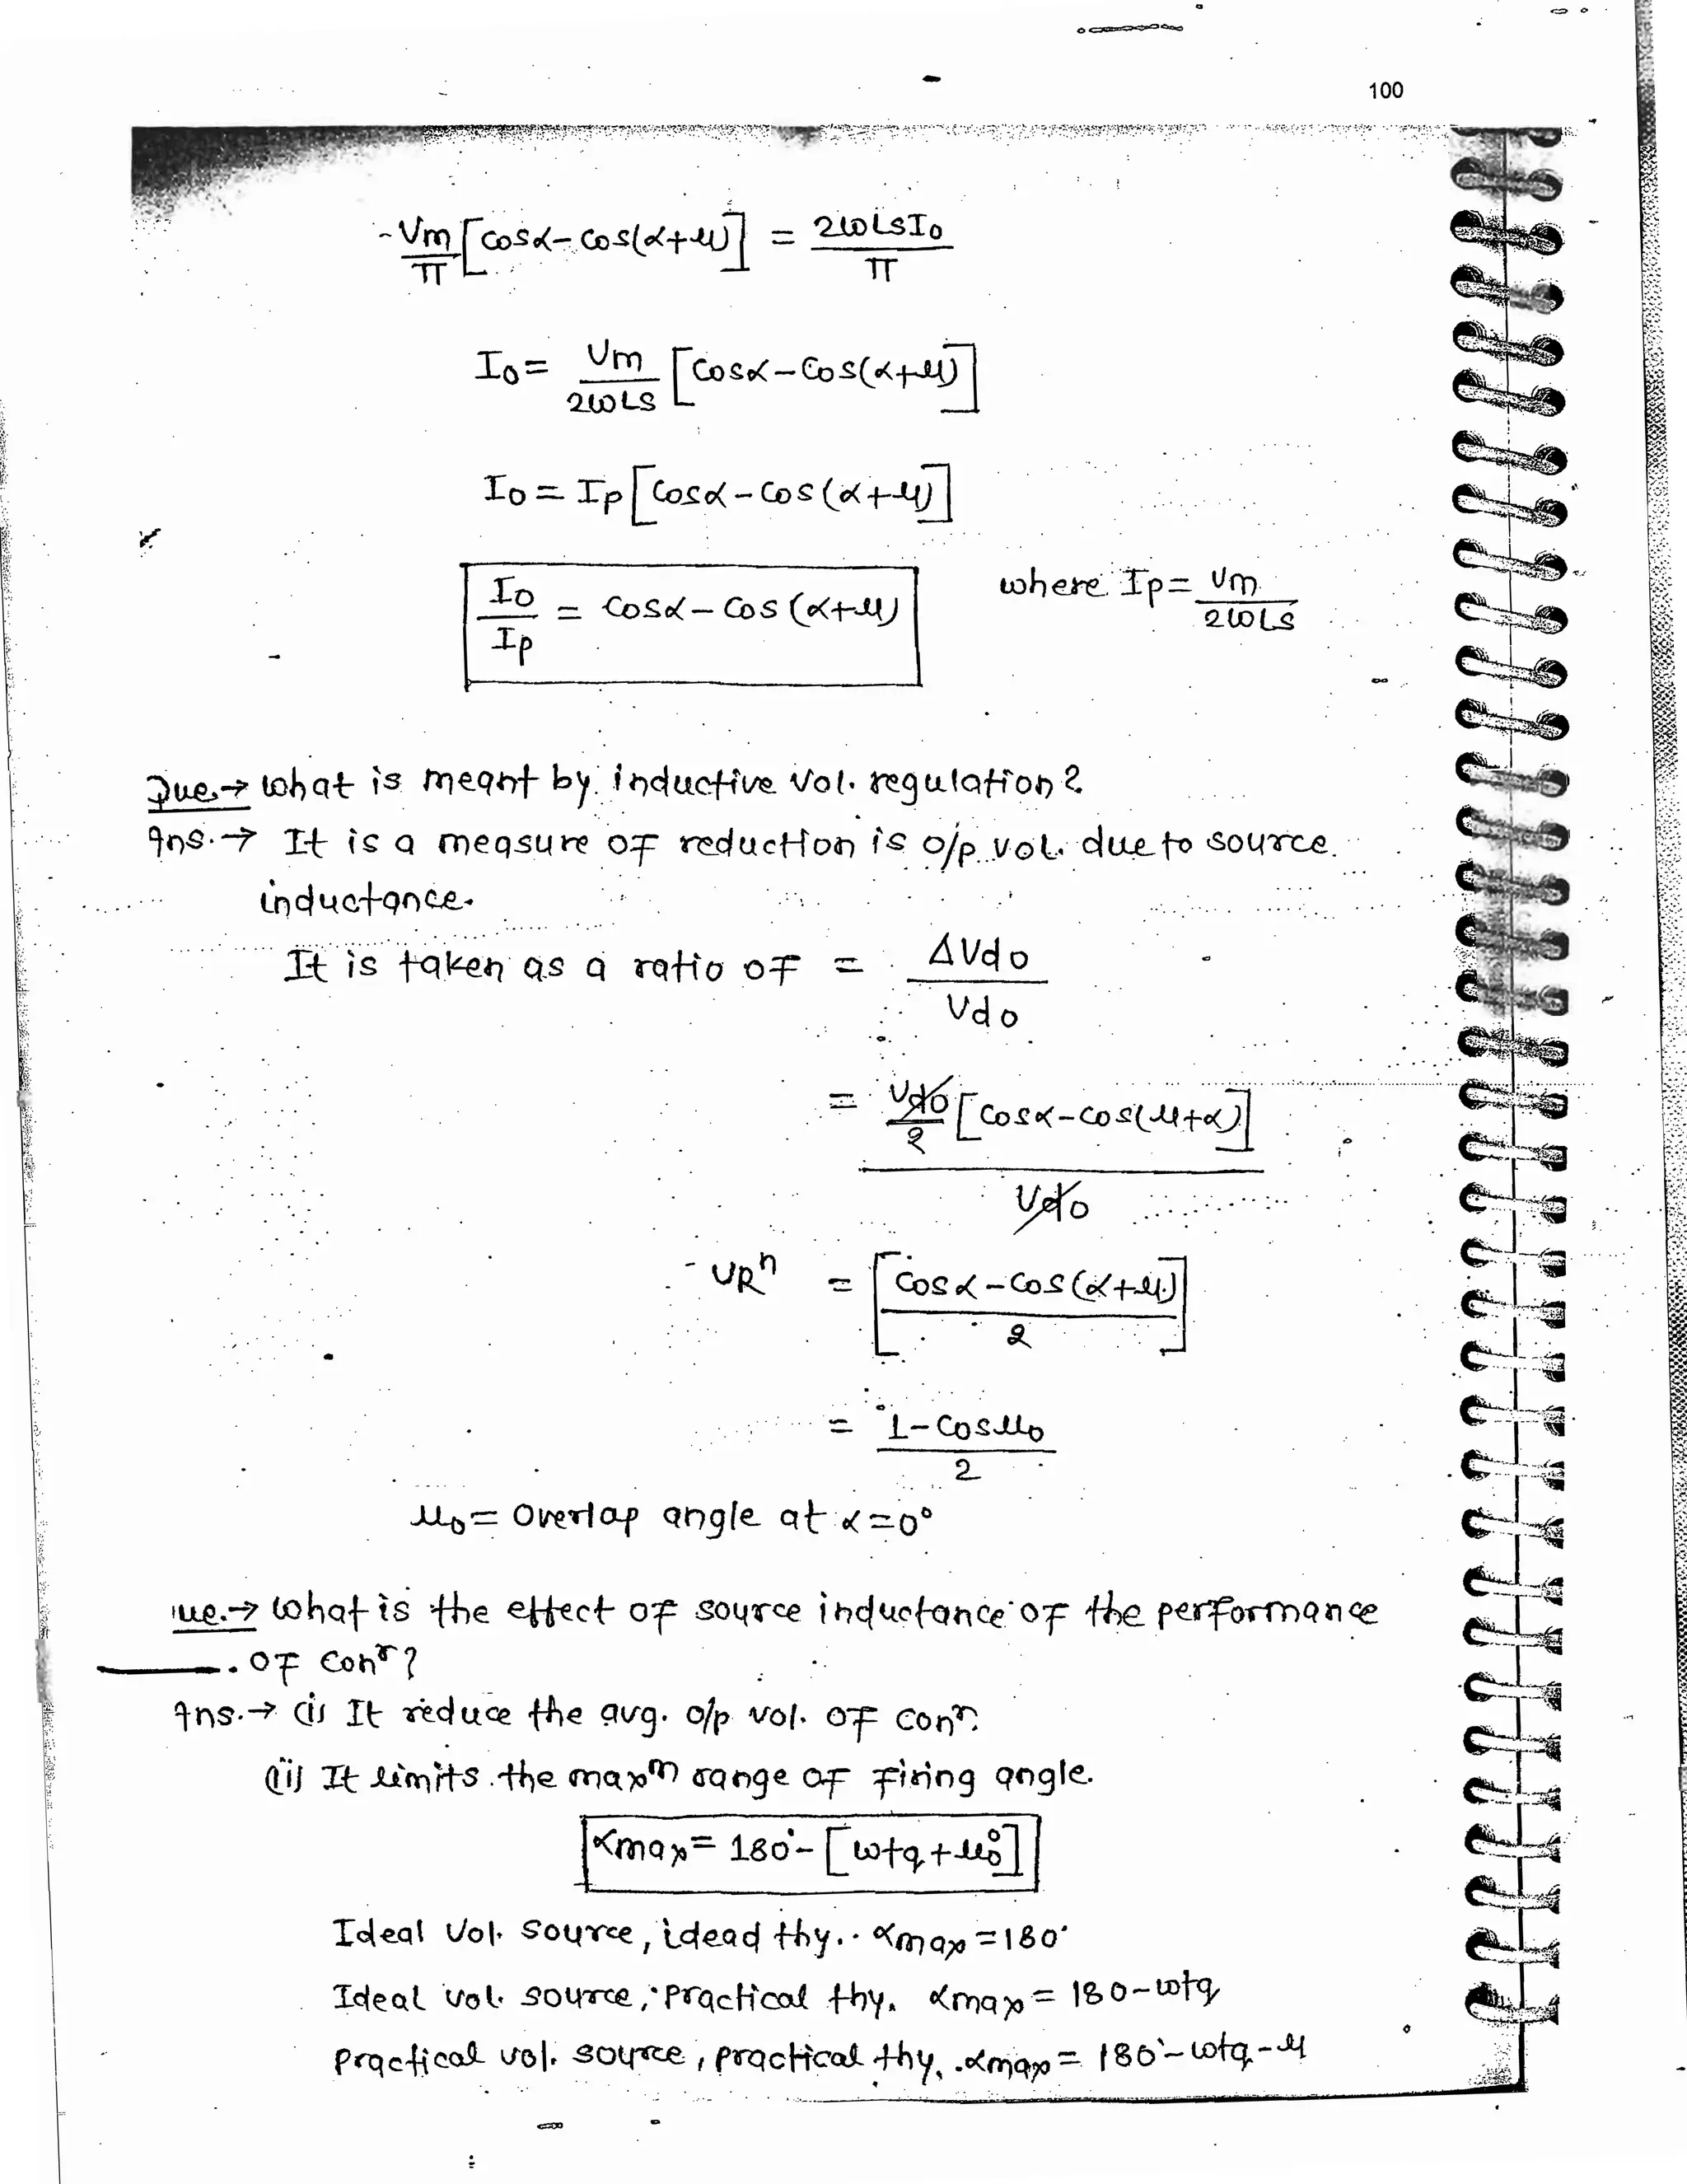 100
Vm/π [cosα - cos(α+μ)] = 2ωLsIo/π
Io = Vm/2ωLs [cosα - cos(α+μ)]
Io = Ip [cosα - cos(α+μ)]
Io/Ip = cosα - cos(α+μ) where Ip = Vm/2ωLs
Que.→ What is meant by inductive vol. regulation?
Ans.→ It is a measure of reduction is o/p vol. due to source
inductance.
It is taken as a ratio of = ΔVdo/Vdo
= Vdo/2 [cosα - cos(μ+α)] / Vdo
VRⁿ = [cosα - cos(α+μ)/2]
= 1 - cosμo/2
μo = Overlap angle at α = 0°
ue.→ What is the effect of source inductance of the performance
. of conʳ?
Ans.→ (i) It reduce the avg. o/p vol. of conʳ.
(ii) It limits the maxᵐ range of firing angle.
αmax = 180° - [ωtq + μo°]
Ideal Vol. source, idead thy.. αmax = 180°
Ideal vol. source, Practical thy. αmax = 180 - ωtq
Practical vol. source, practical thy. αmax = 180° - ωtq - μ